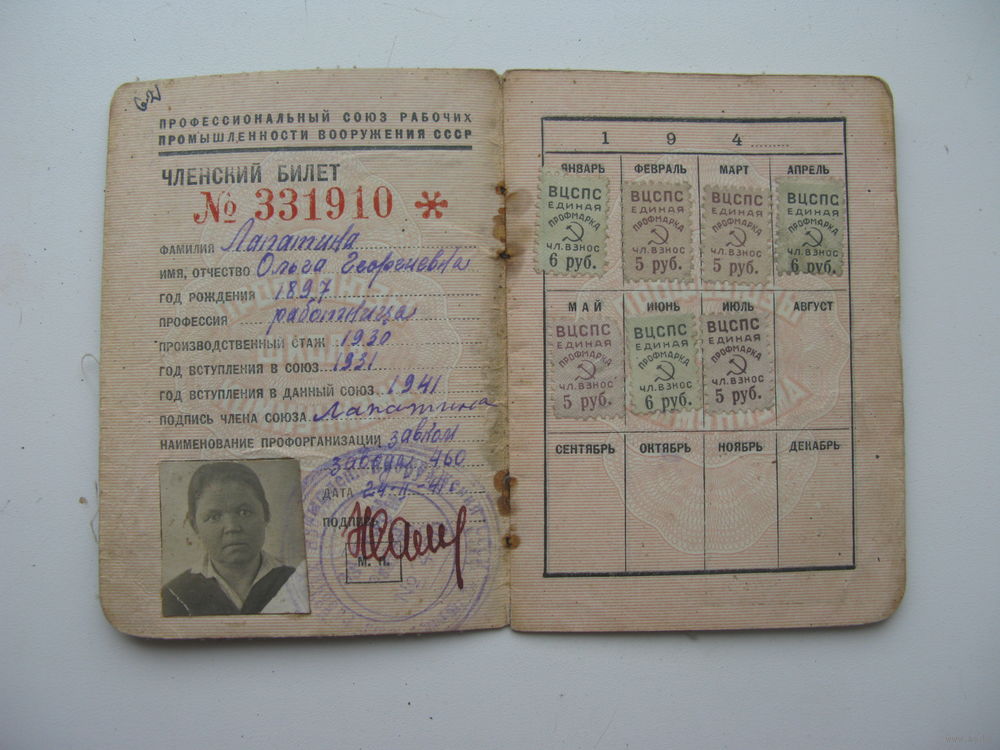 62
ПРОФЕССИОНАЛЬНЫЙ СОЮЗ РАБОЧИХ
ПРОМЫШЛЕННОСТИ ВООРУЖЕНИЯ СССР
ЧЛЕНСКИЙ БИЛЕТ
№ 331910 *
ФАМИЛИЯ Лапатина
ИМЯ, ОТЧЕСТВО Ольга Георгиевна
ГОД РОЖДЕНИЯ 1897
ПРОФЕССИЯ работница
ПРОИЗВОДСТВЕННЫЙ СТАЖ 1930
ГОД ВСТУПЛЕНИЯ В СОЮЗ 1931
ГОД ВСТУПЛЕНИЯ В ДАННЫЙ СОЮЗ 1941
ПОДПИСЬ ЧЛЕНА СОЮЗА Лапатина
НАИМЕНОВАНИЕ ПРОФОРГАНИЗАЦИИ завком
завода 460
ДАТА 24-II-41
ПОДПИСЬ
М. П.
194
ЯНВАРЬ ФЕВРАЛЬ МАРТ АПРЕЛЬ
ВЦСПС ВЦСПС ВЦСПС ВЦСПС
ЕДИНАЯ ЕДИНАЯ ЕДИНАЯ ЕДИНАЯ
ПРОФМАРКА ПРОФМАРКА ПРОФМАРКА ПРОФМАРКА
ЧЛ. ВЗНОС ЧЛ. ВЗНОС ЧЛ. ВЗНОС ЧЛ. ВЗНОС
6 руб. 5 руб. 5 руб. 6 руб.
МАЙ ИЮНЬ ИЮЛЬ АВГУСТ
ВЦСПС ВЦСПС ВЦСПС
ЕДИНАЯ ЕДИНАЯ ЕДИНАЯ
ПРОФМАРКА ПРОФМАРКА ПРОФМАРКА
ЧЛ. ВЗНОС ЧЛ. ВЗНОС ЧЛ. ВЗНОС
5 руб. 6 руб. 5 руб.
СЕНТЯБРЬ ОКТЯБРЬ НОЯБРЬ ДЕКАБРЬ